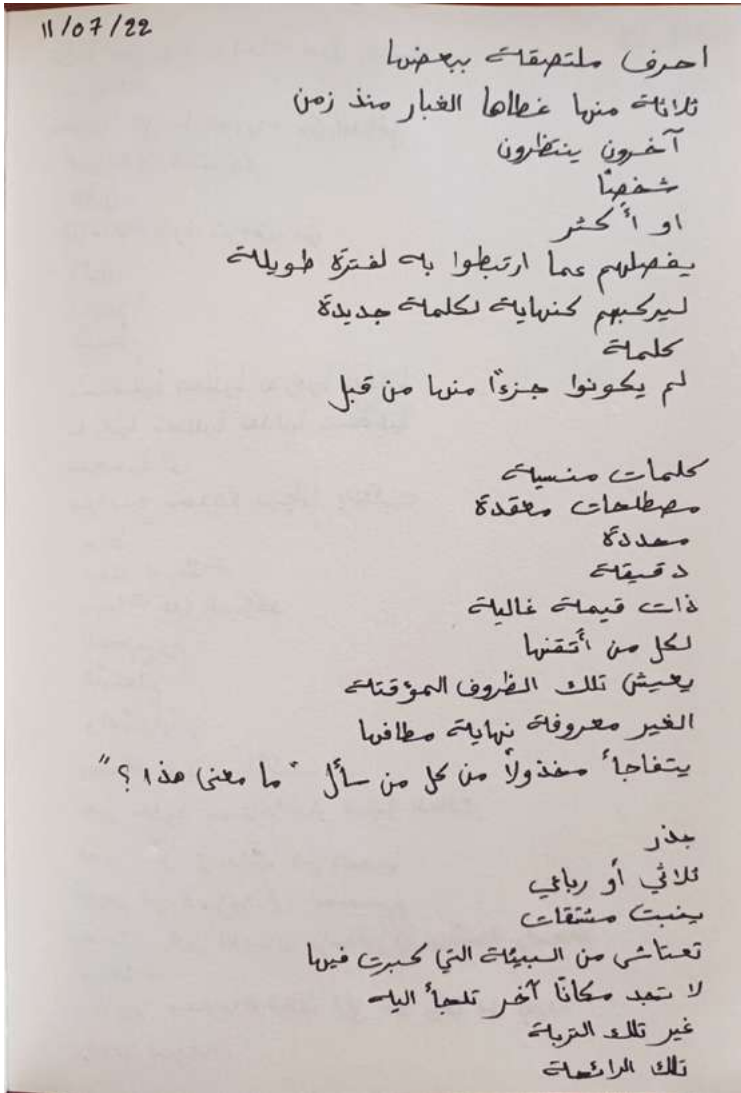 11/07/22
احرف ملتصقة ببعضها
ثلاثة منها غطاها الغبار منذ زمن
آخرون ينتظرون
شخصًا
او أكثر
يفصلهم عما ارتبطوا به لفترة طويلة
ليركبهم كنهاية لكلمة جديدة
كلمة
لم يكونوا جزءًا منها من قبل
كلمات منسية
مصطلحات معقدة
محددة
دقيقة
ذات قيمة غالية
لكل من أتقنها
يعيش تلك الظروف المؤقتة
الغير معروفة نهاية مطافها
يتفاجأ مخذولًا من كل من سأل "ما معنى هذا؟"
جذر
ثلاثي أو رباعي
ينبت مشتقات
تعتاش من البيئة التي كبرت فيها
لا تجد مكانًا آخر تلجأ اليه
غير تلك التربة
تلك الرائحة